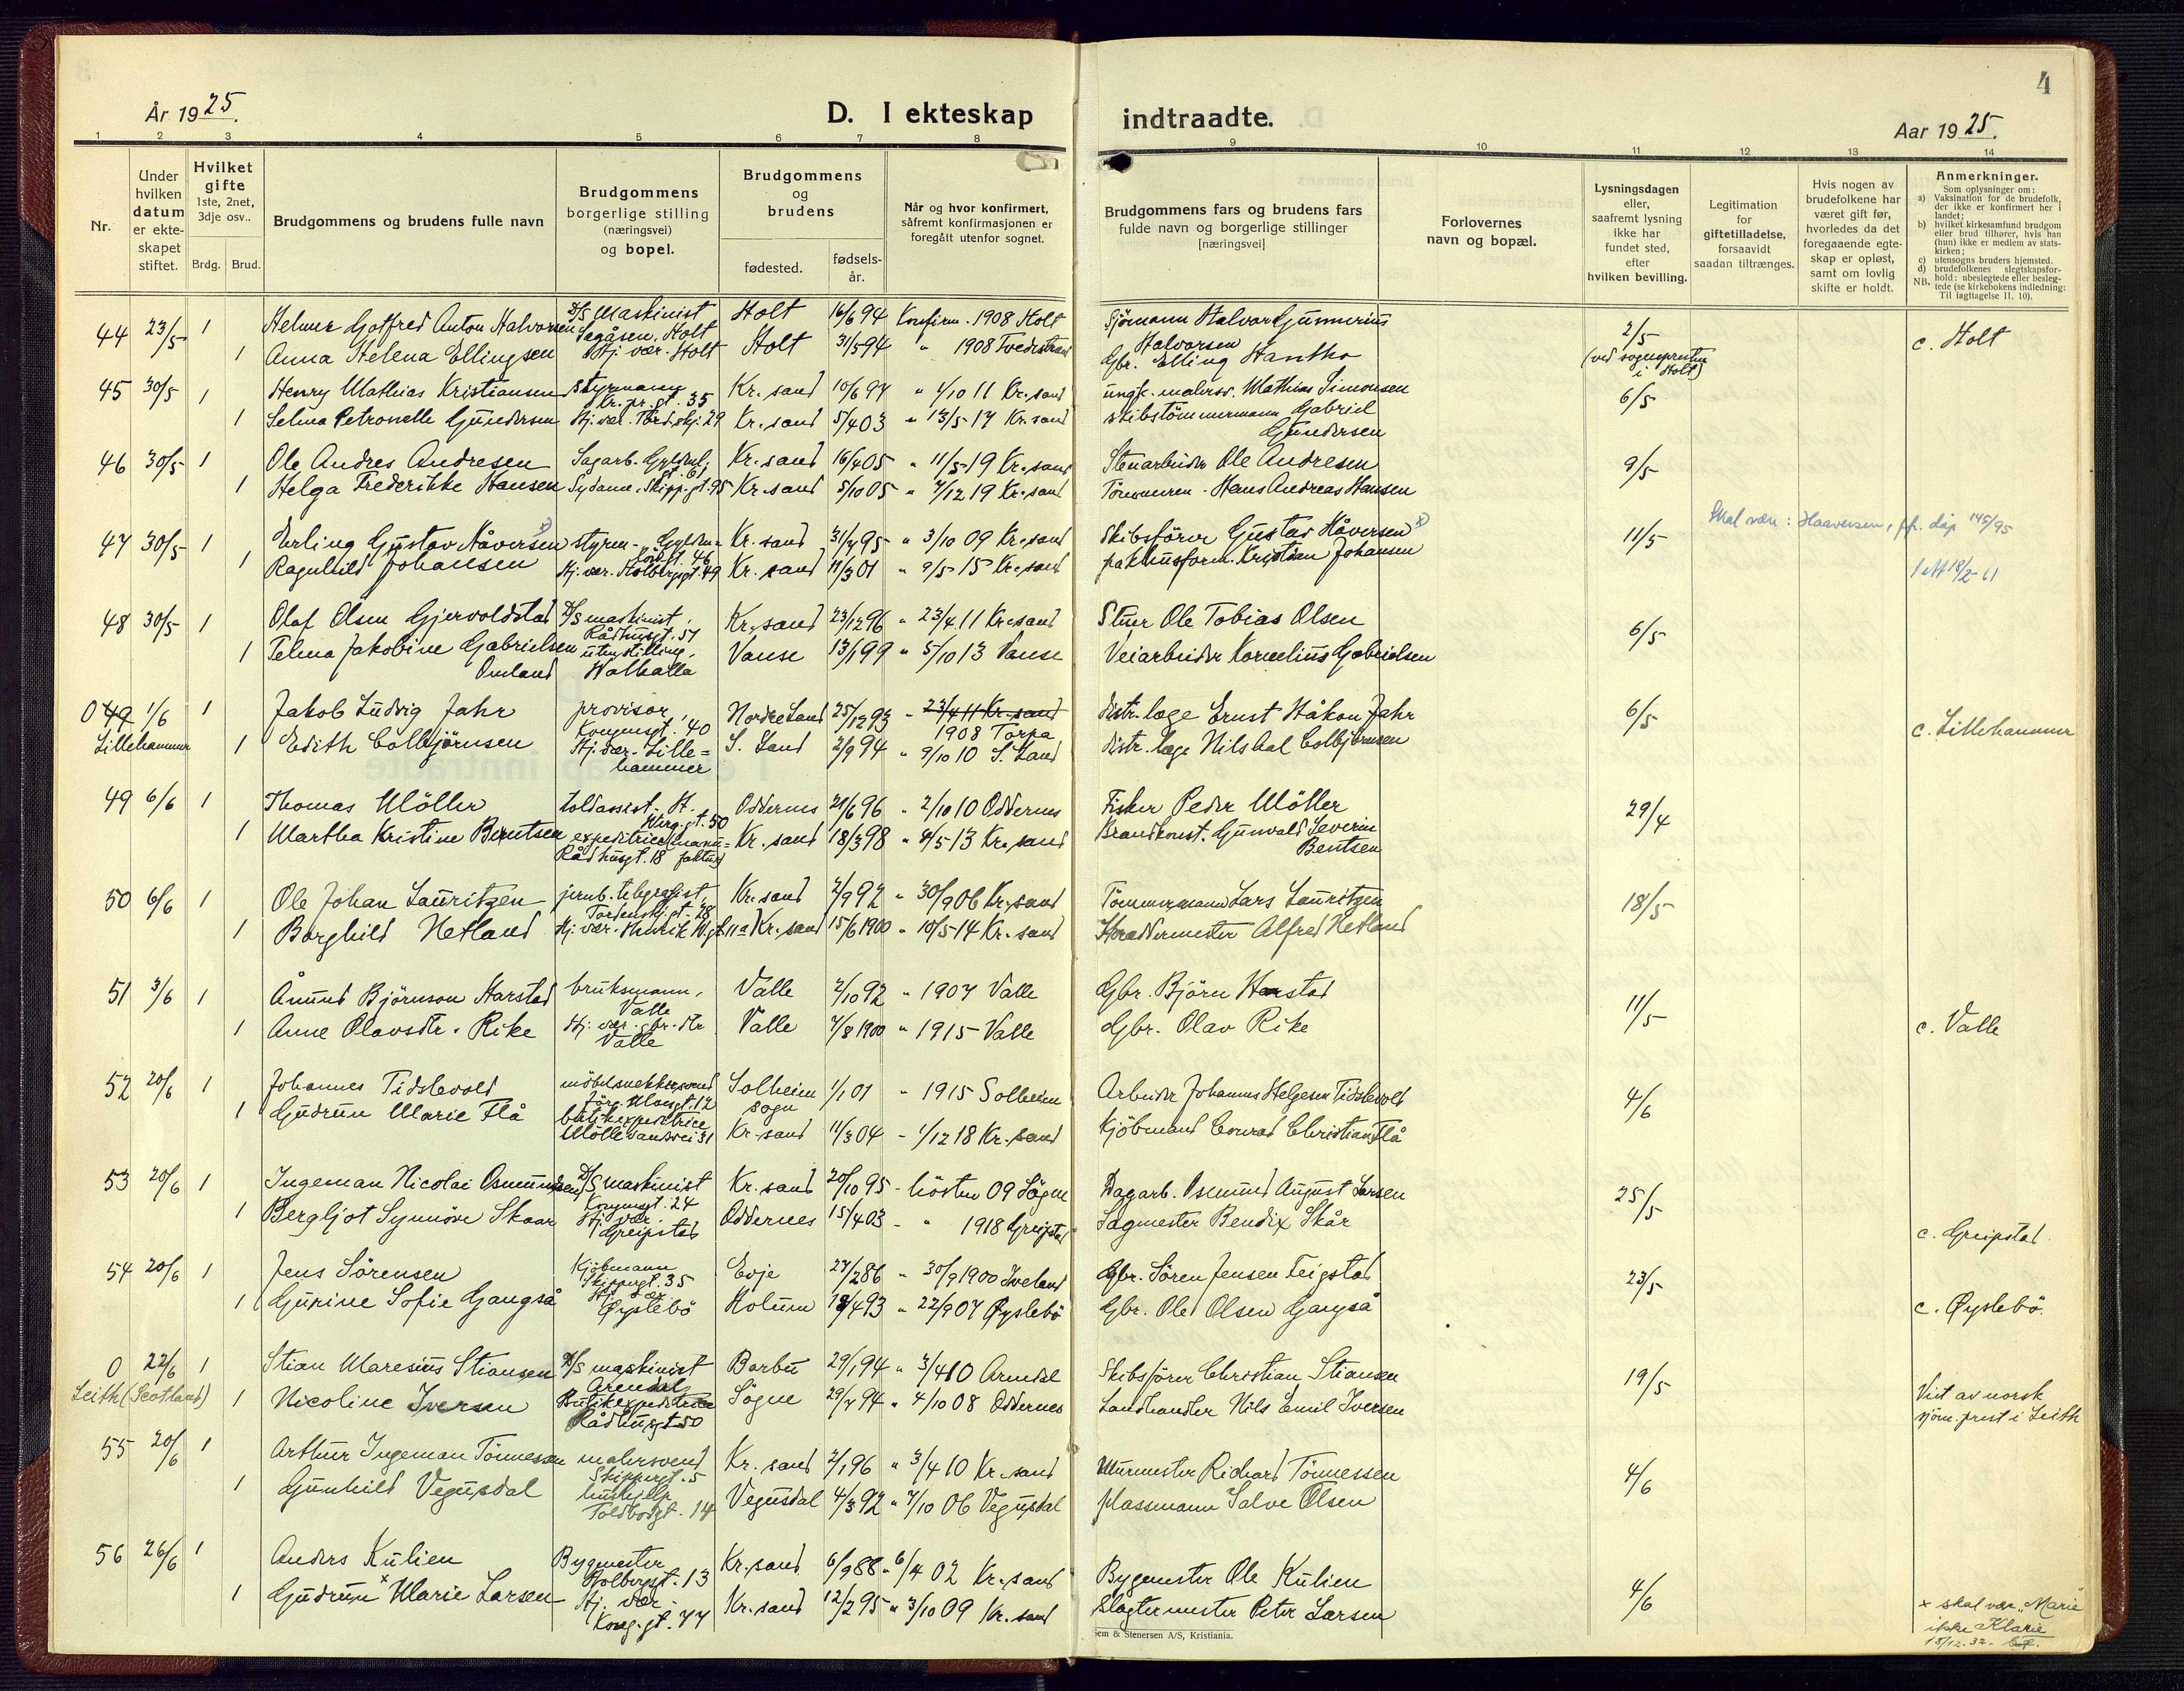 4
År 1925.
D. I ekteskap indtraadte.
Aar 1925.
1 2 3 4 5 6 7 8 9 10 11 12 13 14
Nr.
Under hvilken datum er ekteskapet stiftet.
Hvilket gifte 1ste, 2net, 3dje osv..
Brdg. Brud.
Brudgommens og brudens fulle navn
Brudgommens borgerlige stilling (næringsvei) og bopel.
Brudgommens og brudens
fødested.
fødsels-år.
Når og hvor konfirmert, såfremt konfirmasjonen er foregått utenfor sognet.
Brudgommens fars og brudens fars fulde navn og borgerlige stillinger [næringsvei]
Forlovernes navn og bopæl.
Lysningsdagen eller, saafremt lysning ikke har fundet sted, efter hvilken bevilling.
Legitimation for giftetilladelse, forsaavidt saadan tiltrænges.
Hvis nogen av brudefolkene har været gift før, hvorledes da det foregaaende egteskap er opløst, samt om lovlig skifte er holdt.
Anmerkninger.
Som oplysninger om:
a) Vaksination for de brudefolk, der ikke er konfirmert her i landet;
b) hvilket kirkesamfund brudgom eller brud tilhører, hvis han (hun) ikke er medlem av statskirken;
c) utensogns bruders hjemsted.
d) brudefolkenes slegtskapsforhold: ubeslegtede eller beslegtede (se kirkebokens indledning:
NB. Til iagttagelse II. 10).
44 23/5 1 Helmer Gotfred Anton Halvorsen D/S Maskinist Sagåsen, Holt Holt 16/6 94 Konfirm. 1908 Holt Sjömann Halvor Gunnerius Halvorsen 2/5 (ved sognepresten i Holt) c. Holt
1 Anna Helena Ellingsen Hj. vær. Holt Holt 31/5 94 " 1908 Tvedestrand Gbr. Elling Hantho
45 30/5 1 Henry Mathias Kristiansen styrmann Kr. pr. gt. 35 Kr. sand 10/6 97 " 1/10 11 Kr. sand ungk. malersv. Mathias Simonsen 6/5
1 Selma Petronelle Gundersen Hj. vær. Tord.skj. 29 Kr. sand 5/4 03 " 13/5 17 Kr. sand skibstömmermann Gabriel Gundersen
46 30/5 1 Ole Andres Andresen Sagarb. Gyldenl. gt. 61 Kr. sand 16/4 05 " 11/5 19 Kr. sand Stenarbeider Ole Andresen 9/5
1 Helga Frederikke Hansen Sydame, Skipp. gt. 95 Kr. sand 5/10 05 " 7/12 19 Kr. sand Hans Andreas Hansen
47 30/5 1 Erling Gustav Nåversen x) styrm. Gyldenlövesgt. 46 Kr. sand 31/7 95 " 3/10 09 Kr. sand Skibsförer Gustav Håversen x) 11/5 Skal være: Haaversen, jfr. dåp 145/95
1 Ragnhild Johansen Hj. vær. Holbergsgt. 49 Kr. sand 11/3 01 " 9/5 15 Kr. sand pakhusform. Kristian Johansen 1 att 18/2-61
48 30/5 1 Olaf Olsen Gjervoldstad D/S maskinist, Rådhusgt. 57 Kr. sand 23/12 96 " 23/4 11 Kr. sand Stuer Ole Tobias Olsen 6/5
1 Telma Jakobine Gabrielsen Omland uten stilling, Walhalla Vanse 13/1 99 " 5/10 13 Vanse Veiarbeider Kornelius Gabrielsen
0 49 1/6 1 Jakob Ludvig Jahr provisor, Kongensgt. 40 Nordre Land 25/12 93 - 23/4 11 Kr. sand 1908 Torpa distr. læge Ernst Håkon Jahr 6/5 c. Lillehammer
Lillehammer 1 Edith Colbjörnsen Hj. vær. Lillehammer S. Land 2/9 94 " 9/10 10 S. Land distr. læge Nils Aal Colbjörnsen
49 6/6 1 Thomas Möller toldassist. H. Werg. gt. 50 Oddernes 21/6 96 " 2/10 10 Oddernes Fisker Peder Möller 29/4
1 Martha Kristine Berntsen expeditrice (manufaktur) Rådhusgt. 18 Kr. sand 18/3 98 " 4/5 13 Kr. sand Brandkonst. Gunvald Severin Bentsen
50 6/6 1 Ole Johan Lauritzen jernb. telegrafist, Tordenskj. gt. 28 Kr. sand 2/9 92 " 30/9 06 Kr. sand Tömmermann Lars Lauritzen 18/5
1 Borghild Hetland Hj. vær. Henrik W. gt. 11a Kr. sand 15/6 1900 " 10/5 14 Kr. sand Skreddermester Alfred Hetland
51 3/6 1 Åmund Björnson Harstad bruksmann, Valle Valle 2/10 92 " 1907 Valle Gbr. Björn Harstad 11/5
1 Anne Olavsdtr. Rike Hj. vær. gbr. dtr Valle Valle 7/8 1900 " 1915 Valle Gbr. Olav Rike c. Valle
52 20/6 1 Johannes Tidslevold möbelsnekkersvend Jörg. Moesgt. 12 Solheim sogn 1/1 01 " 1915 Solheim Arbeider Johannes Helgesen Tidslevold 4/6
1 Gudrun Marie Flå butikexpeditrice Möllevandsvei 31 Kr. sand 11/3 04 - 1/12 18 Kr. sand Kjöbmand Conrad Christian Flå
53 20/6 1 Ingeman Nicolai Osmundsen D/S maskinist Kongensgt. 24 Kr. sand 20/10 95 - hösten 09 Sögne Dagarb. Osmund August Larsen 25/5
1 Bergljot Synnöve Skaar Hj. vær. Greipstad Oddernes 15/4 03 - " 1918 Greipstad Sagmester Bendix Skår c. Greipstad.
54 20/6 1 Jens Sörensen Kjöbmann Skippergt. 35 Evje 27/2 86 " 30/9 1900 Iveland Gbr. Sören Jensen Feigstad 23/5
1 Gurine Sofie Gangså Hj. vær. Øyslebö Holum 18/4 93 " 22/9 07 Øyslebö Gbr. Ole Olsen Gangså c. Øyslebö.
0 22/6 1 Stian Maresius Stiansen D/S maskinist Arendal Barbu 29/1 94 " 3/4 10 Arendal Skibsförer Christian Stiansen 19/5 Viet av norsk sjöm. prest i Leith
Leith (Scotland) 1 Nicoline Iversen Butikexpeditrice Rådhusgt. 50 Sögne 29/7 94 " 4/10 08 Oddernes Landhandler Nils Emil Iversen
55 20/6 1 Arthur Ingeman Tönnessen malersvend Skippergt. 5 Kr. sand 2/1 96 " 3/4 10 Kr. sand Murmester Richard Tönnessen 4/6
1 Gunhild Vegusdal hushjelp Toldbodgt. 14 Vegusdal 4/3 92 " 7/10 06 Vegusdal plassmann Salve Olsen
56 26/6 1 Anders Kulien Bygmester Holbergsgt. 13 Kr. sand 6/9 88 " 6/4 02 Kr. sand Bygmester Ole Kulien 4/6
1 Gudrun x Marie Larsen Hj. vær. Kong. gt. 77 Kr. sand 12/2 95 " 3/10 09 Kr. sand Slagtermester Peter Larsen x skal være "Marie" ikke Klarie 15/12.32.
Sem & Stenersen A/S, Kristiania.